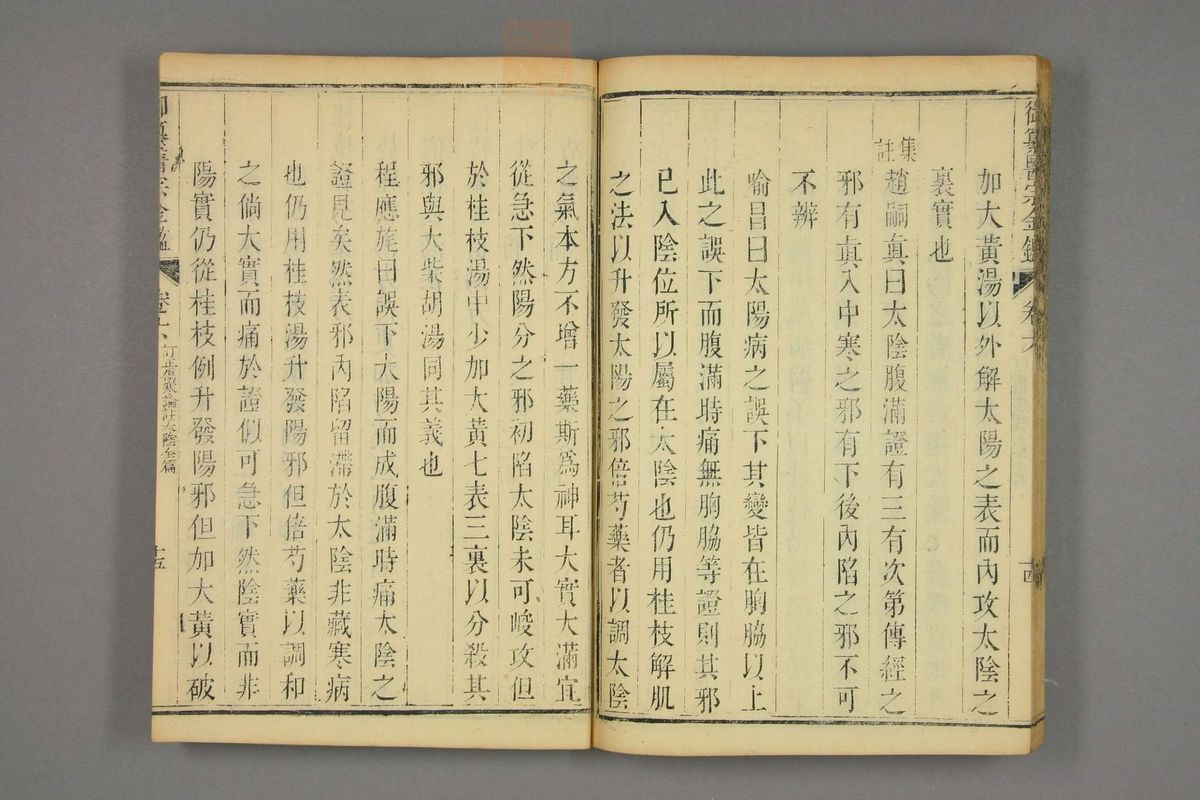 御纂醫宗金鑑 卷六 十四
加大黃湯以外解太陽之表而內攻太陰之
裏實也
集註
趙嗣眞曰太陰腹滿證有三有次第傳經之
邪有直入中寒之邪有下後內陷之邪不可
不辨
喻昌曰太陽病之誤下其變皆在胸脇以上
此之誤下而腹滿時痛無胸脇等證則其邪
已入陰位所以屬在太陰也仍用桂枝解肌
之法以升發太陽之邪倍芍藥者以調太陰
之氣本方不增一藥斯爲神耳大實大滿宜
從急下然陽分之邪初陷太陰未可峻攻但
於桂枝湯中少加大黃七表三裏以分殺其
邪與大柴胡湯同其義也
程應旄曰誤下太陽而成腹滿時痛太陰之
證見矣然表邪內陷留滯於太陰非藏寒病
也仍用桂枝湯升發陽邪但倍芍藥以調和
之倘大實而痛於證似可急下然陰實而非
陽實仍從桂枝例升發陽邪但加大黃以破
御纂醫宗金鑑 卷六 訂正傷寒論註太陰全篇 十五